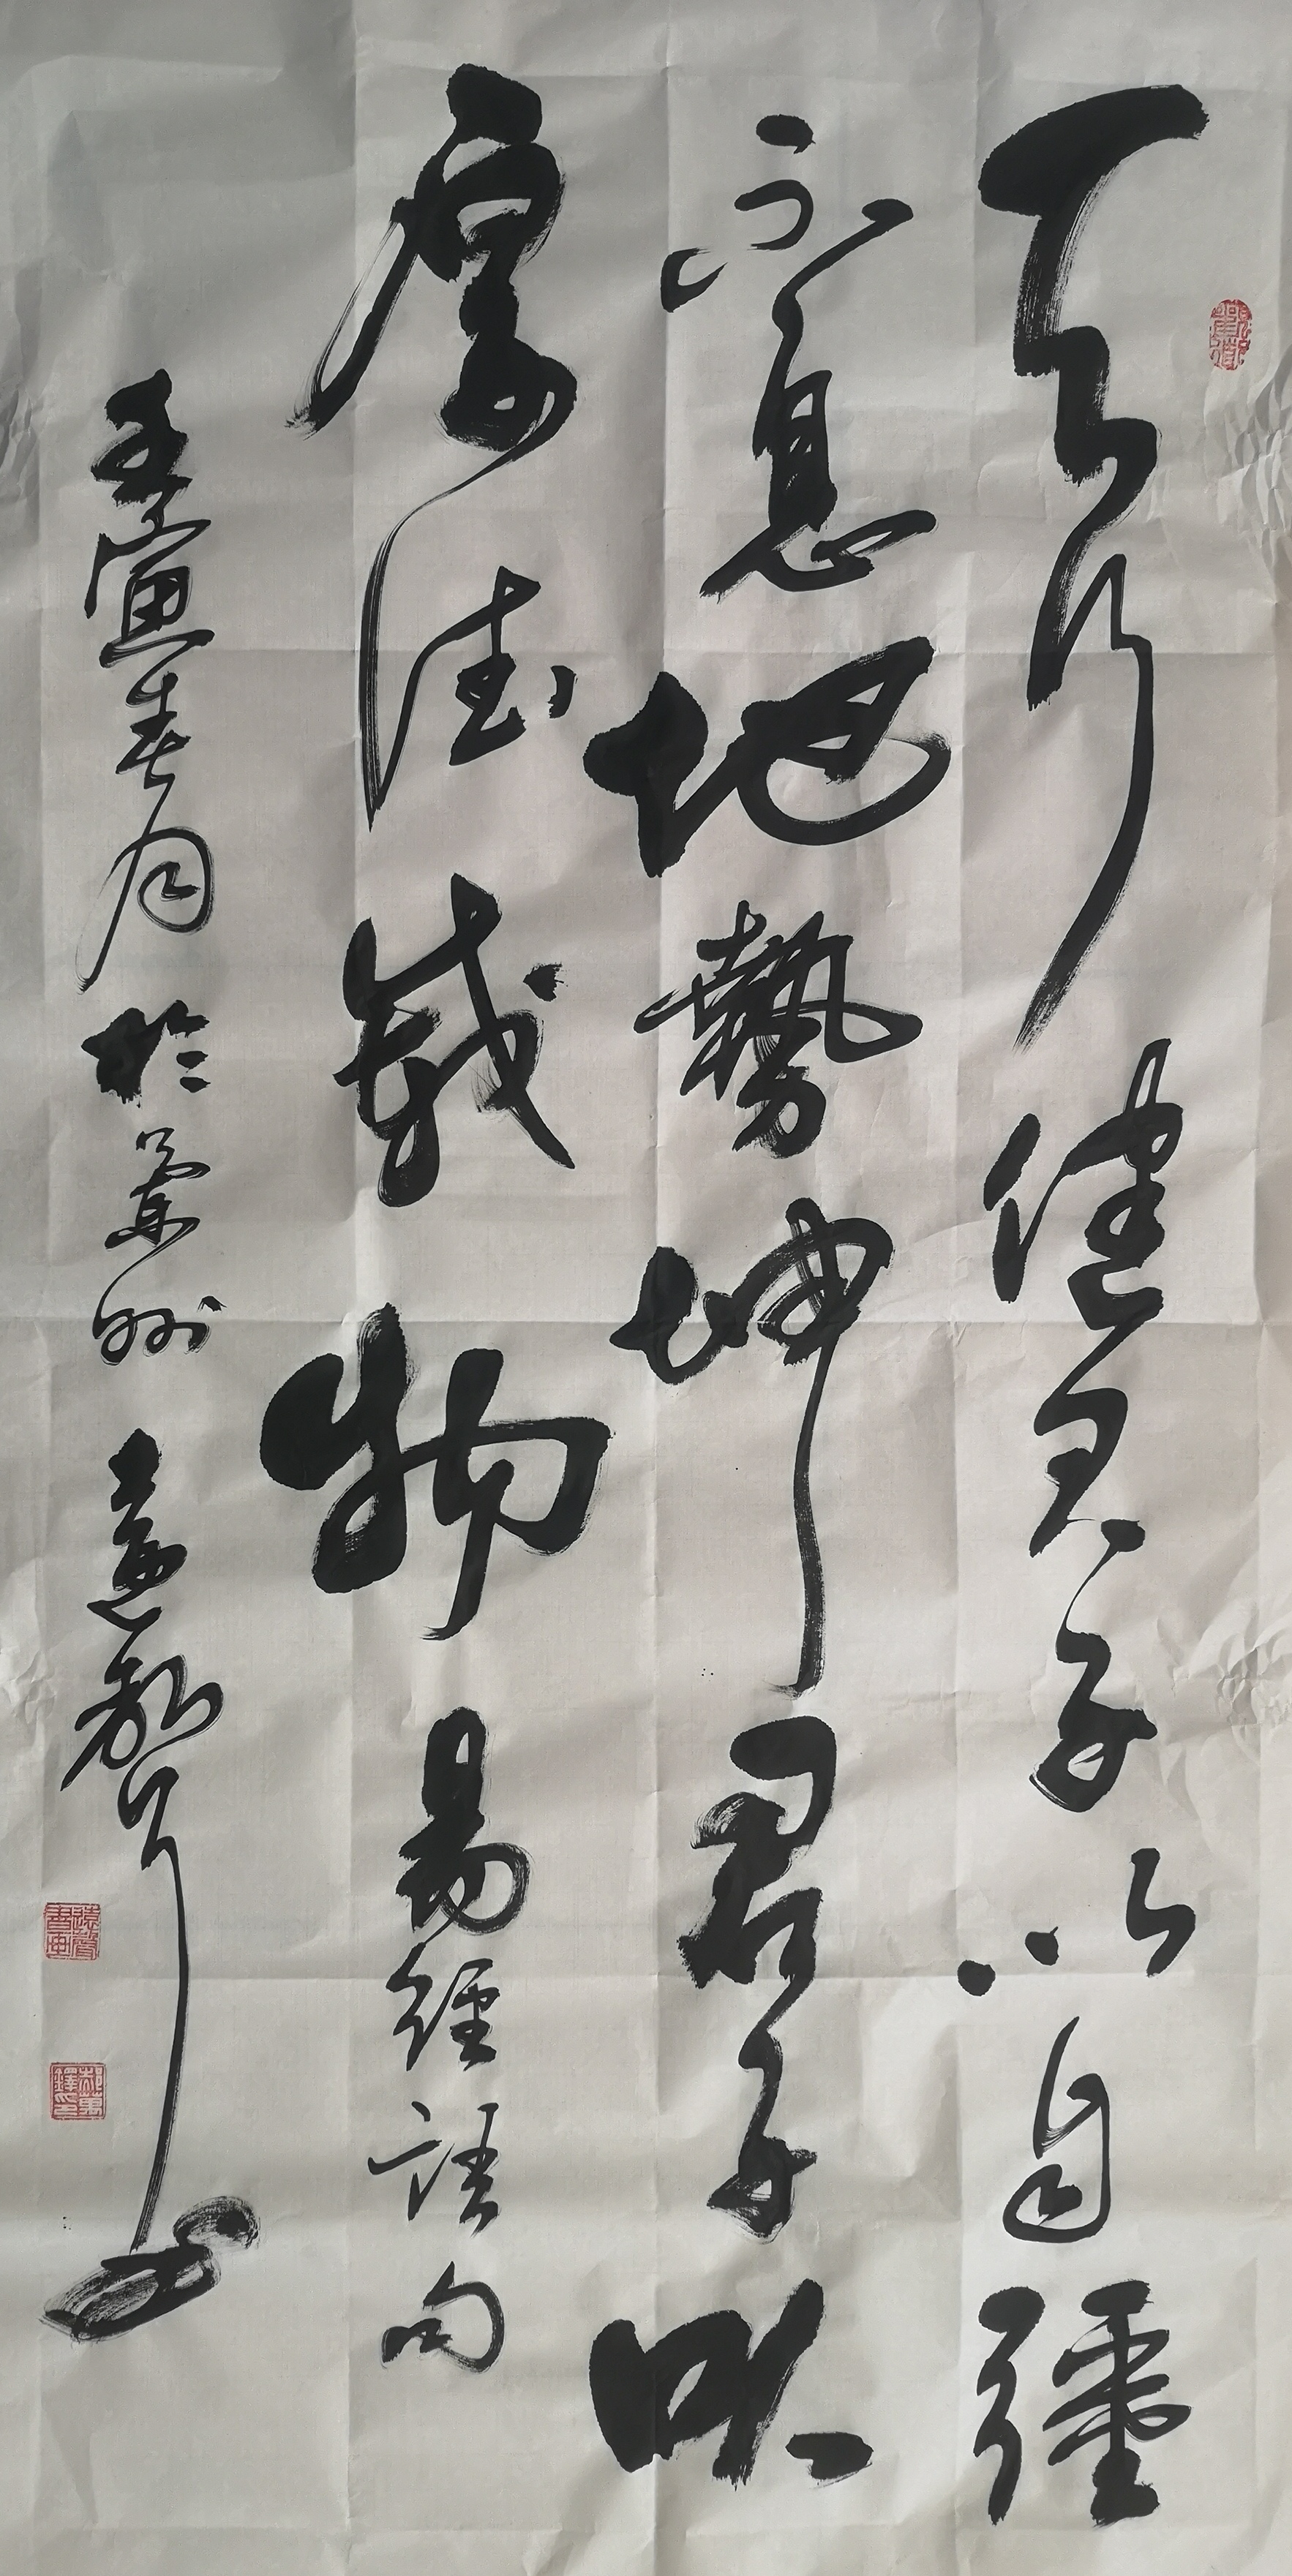 天行健君子以自彊
不息地勢坤君子以
厚德載物易經語句
壬寅春月於蘭州